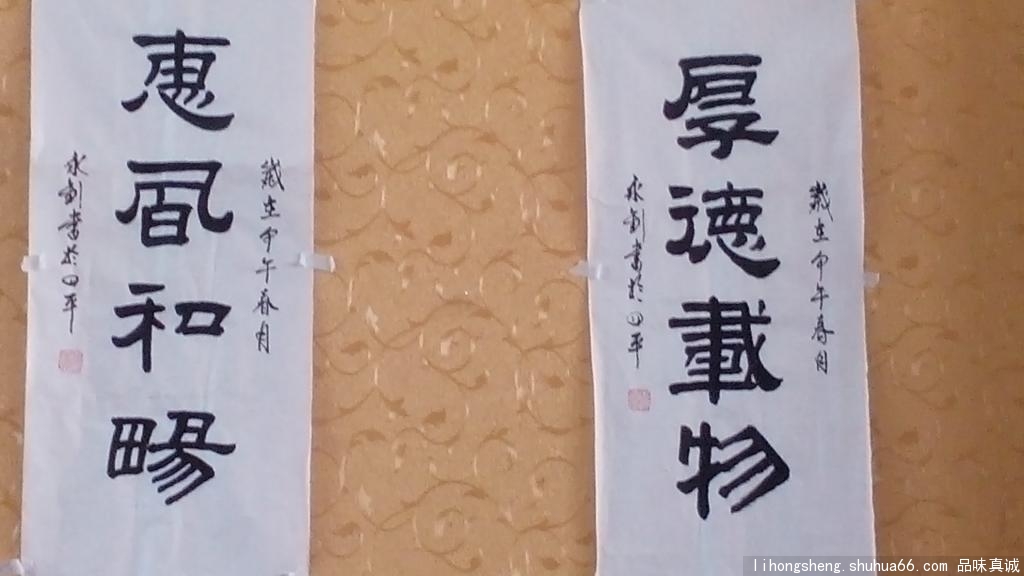 厚德載物
歲在甲午春月
永剑書於四平
惠風和暢
歲在甲午春月
永剑書於四平
lihongsheng.shuhua66.com 品味真诚